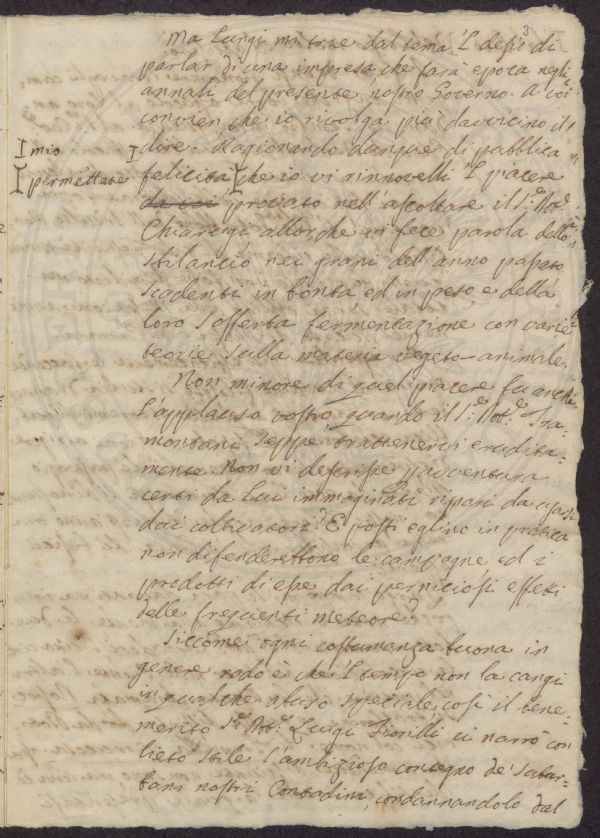 3
Ma lungi mi trae dal tema 'l desio di
parlar di una impresa che farà epoca negli
annali del presente nostro Governo. A voi
convien che io rivolga più da vicino il
mio
dire. Ragionando dunque di pubblica
permettete
felicità che io vi rinnovelli 'l piacere
da voi provato nell'ascoltare il S.e Dot.e
Chiarugi allorchè vi fece parola dello
sbilancio nei grani dell'anno passato
scadenti in bontà ed in peso, e della
loro sofferta fermentazione con varie
teorie sulla materia vegeto-animale.
Non minore di quel piacere fu anche
l'applauso vostro quando il S.e Dot.e Tra-
montani seppe trattenervi erudita-
mente. Non vi descrisse p avventura
certi da lui immaginati ripari da usarsi
dai coltivatori? E posti eglino in pratica
non difenderebbono le campagne ed i
prodotti di esse dai perniciosi effetti
delle frequenti meteore?
Siccome ogni costumanza buona in
genere rado è che 'l tempo non la cangi
in qualche abuso speciale, così il bene-
merito S.e Dot.e Luigi Fiorilli ci narrò con
lieto stile l'ambizioso contegno de' Subur-
bani nostri Contadini, condannandolo dal